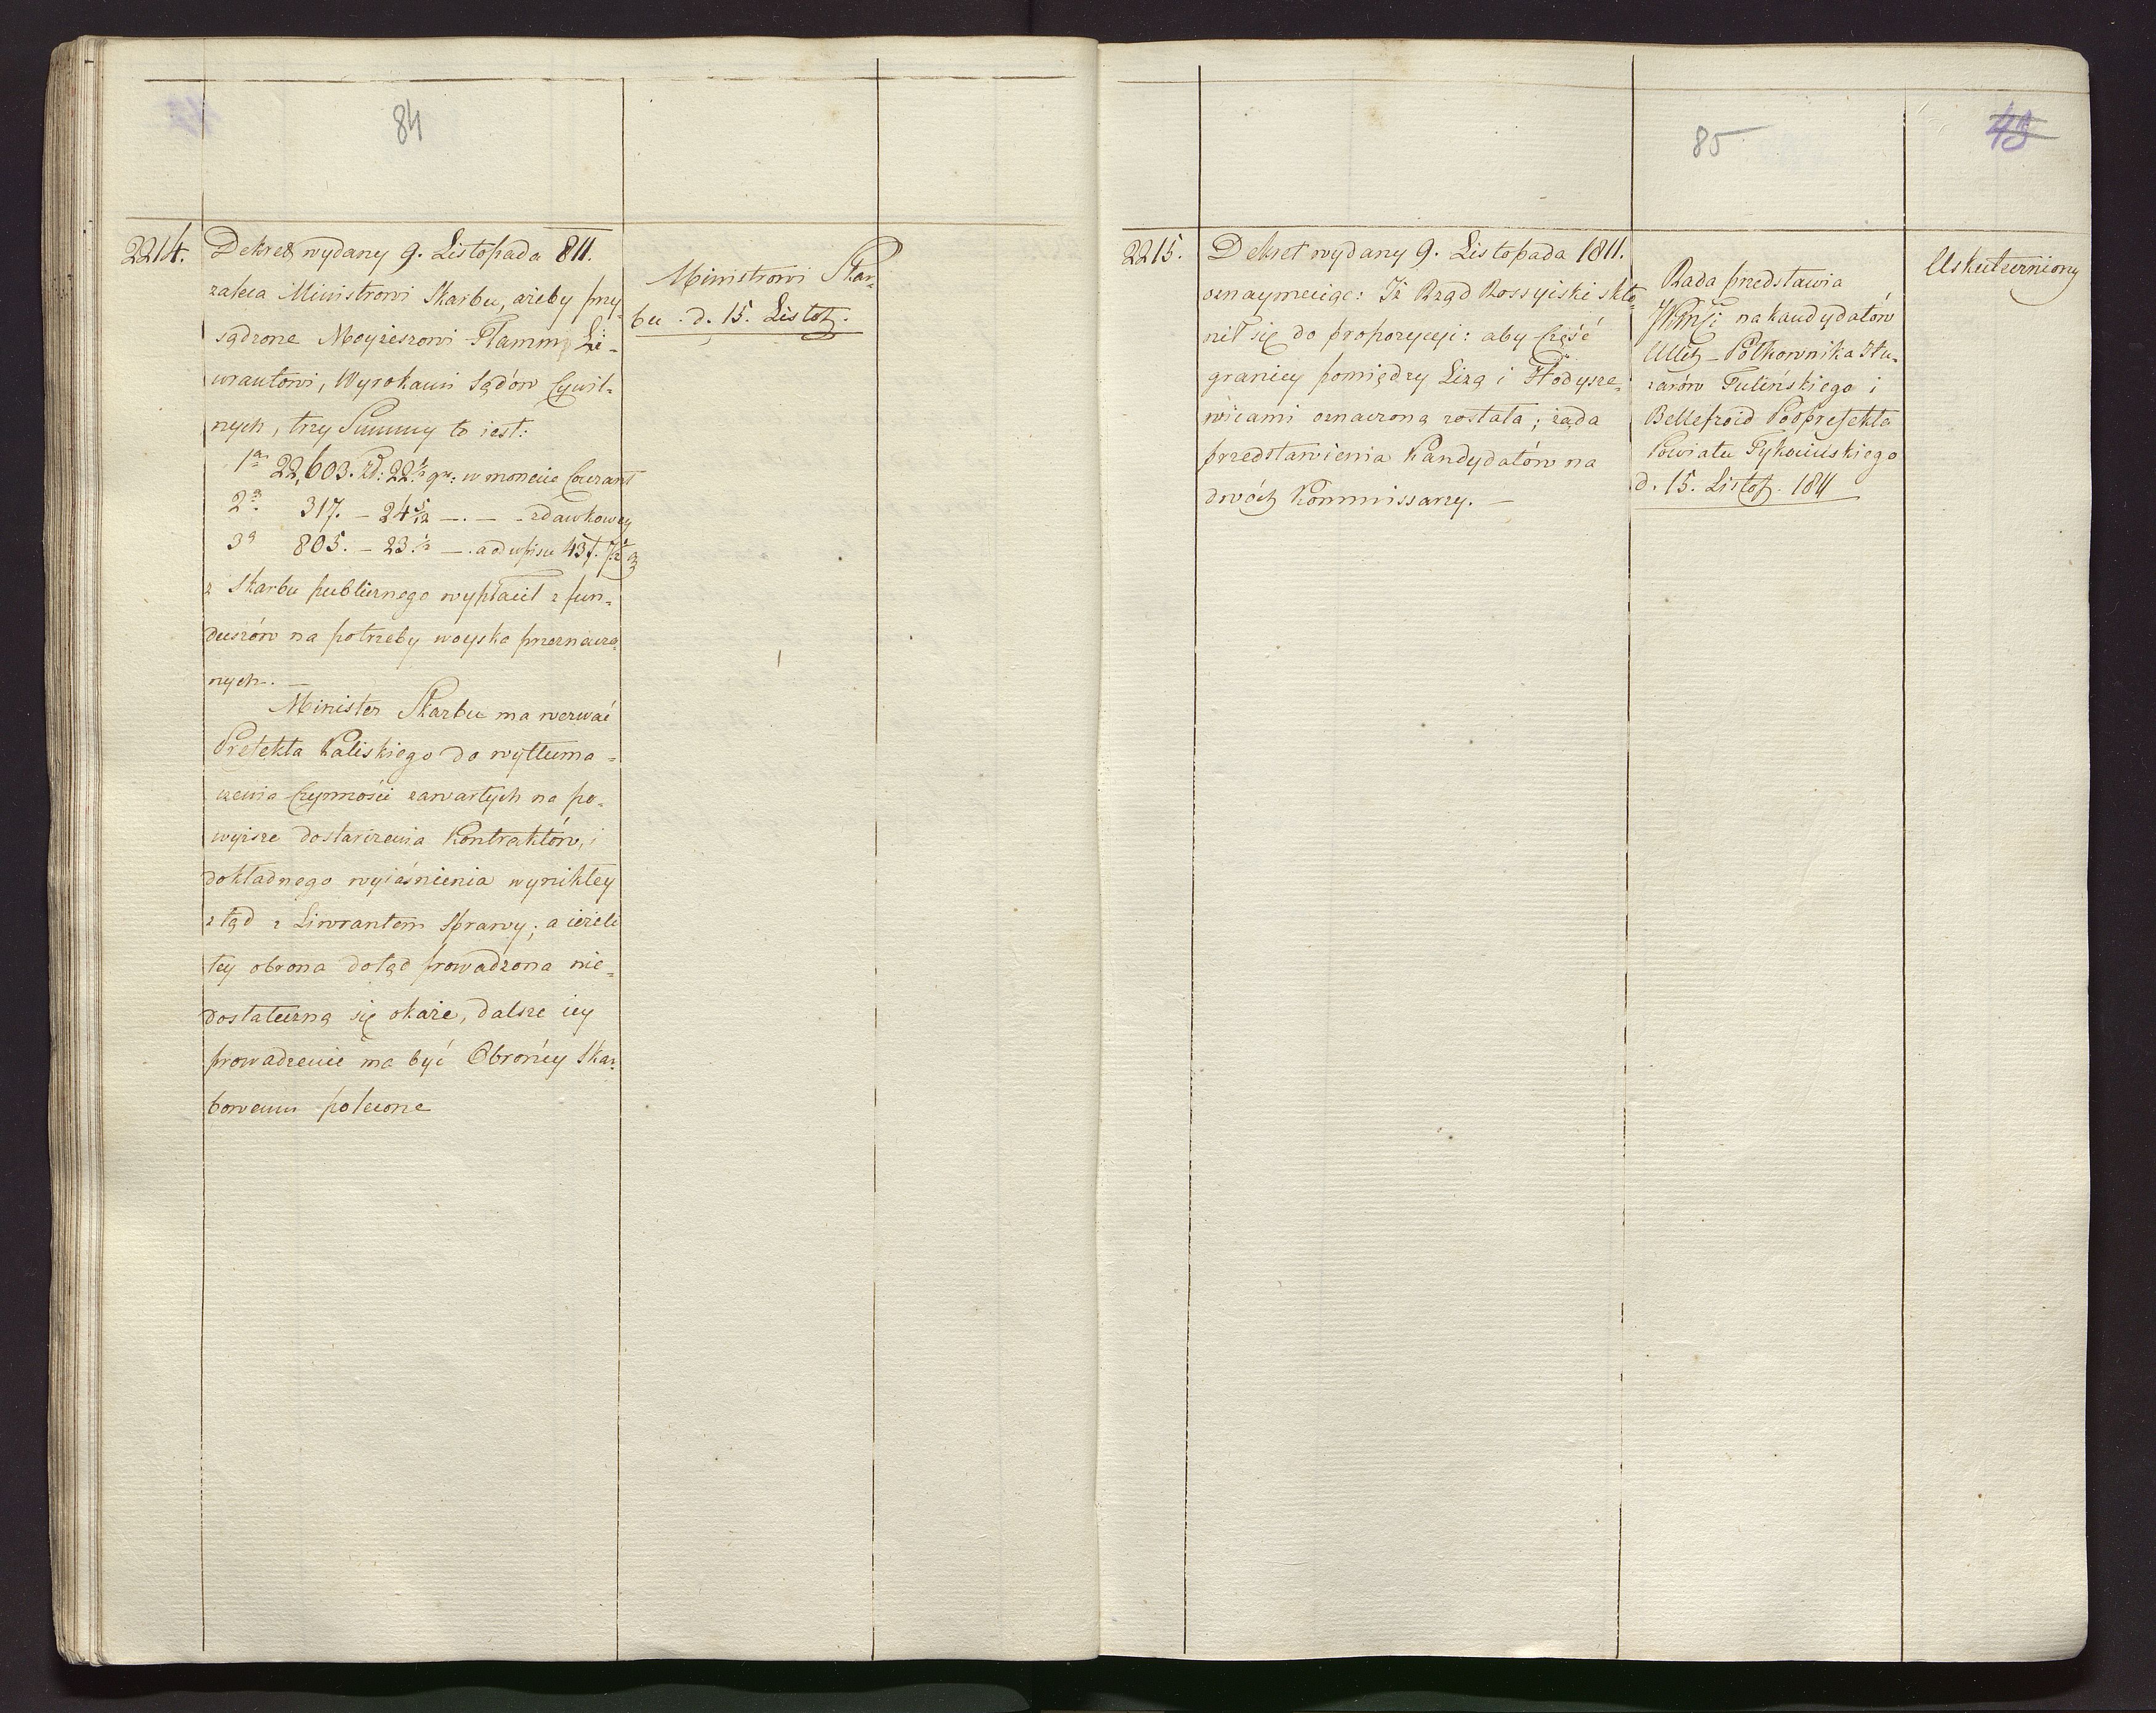 84
2214.
Dekret wydany 9. Listopada 811.
zaleca Ministrowi Skarbu, ażeby przy-
sądzone Moyżeszowi Flamm Li-
wrantowi, Wyrokami Sądów Cywil-
nych, trzy Summy to iest:
1a 22,603. Zł: 22 1/2 gr: w monecie Courant
2a 317. – 24 5/12 –. – – zdawkowey
3a 805. – 23. 1/2 –. ad wpisu 437.
z Skarbu publicznego wypłacił z fun-
duszów na potrzeby woyska przeznaczo-
nych. –
Minister Skarbu ma wezwać
Prefekta Kaliskiego do wytłuma-
czenia Czynności zawartych na po-
wyższe dostarczenia Kontraktów, i
dokładnego wyiaśnienia wynikłey
ztąd z Liwrantem Sprawy; a ieżeli
tey obrona dotąd prowadzona nie-
dostateczną się okaże, dalsze iey
prowadzenie ma być Obrońcy Skar-
bowemu polecone
Ministrowi Skar-
bu. d. 15. Listop.
85
43
2215.
Dekret wydany 9. Listopada 1811.
oznaymuiąc: Iż Rząd Rossyiski skło-
nił się do propozycyi: aby Część
granicy pomiędzy Lizą i Hodysze-
wicami oznaczoną została; żąda
przedstawienia Kandydatów na
dwóch Kommissarzy. –
Rada przedstawia
na kandydatów
Pólkownika Hu-
zarów Tulińskiego i
Bellefroid Podprefekta
Powiatu Tykocińskiego
d. 15. Listop. 1811
Uskuteczniony